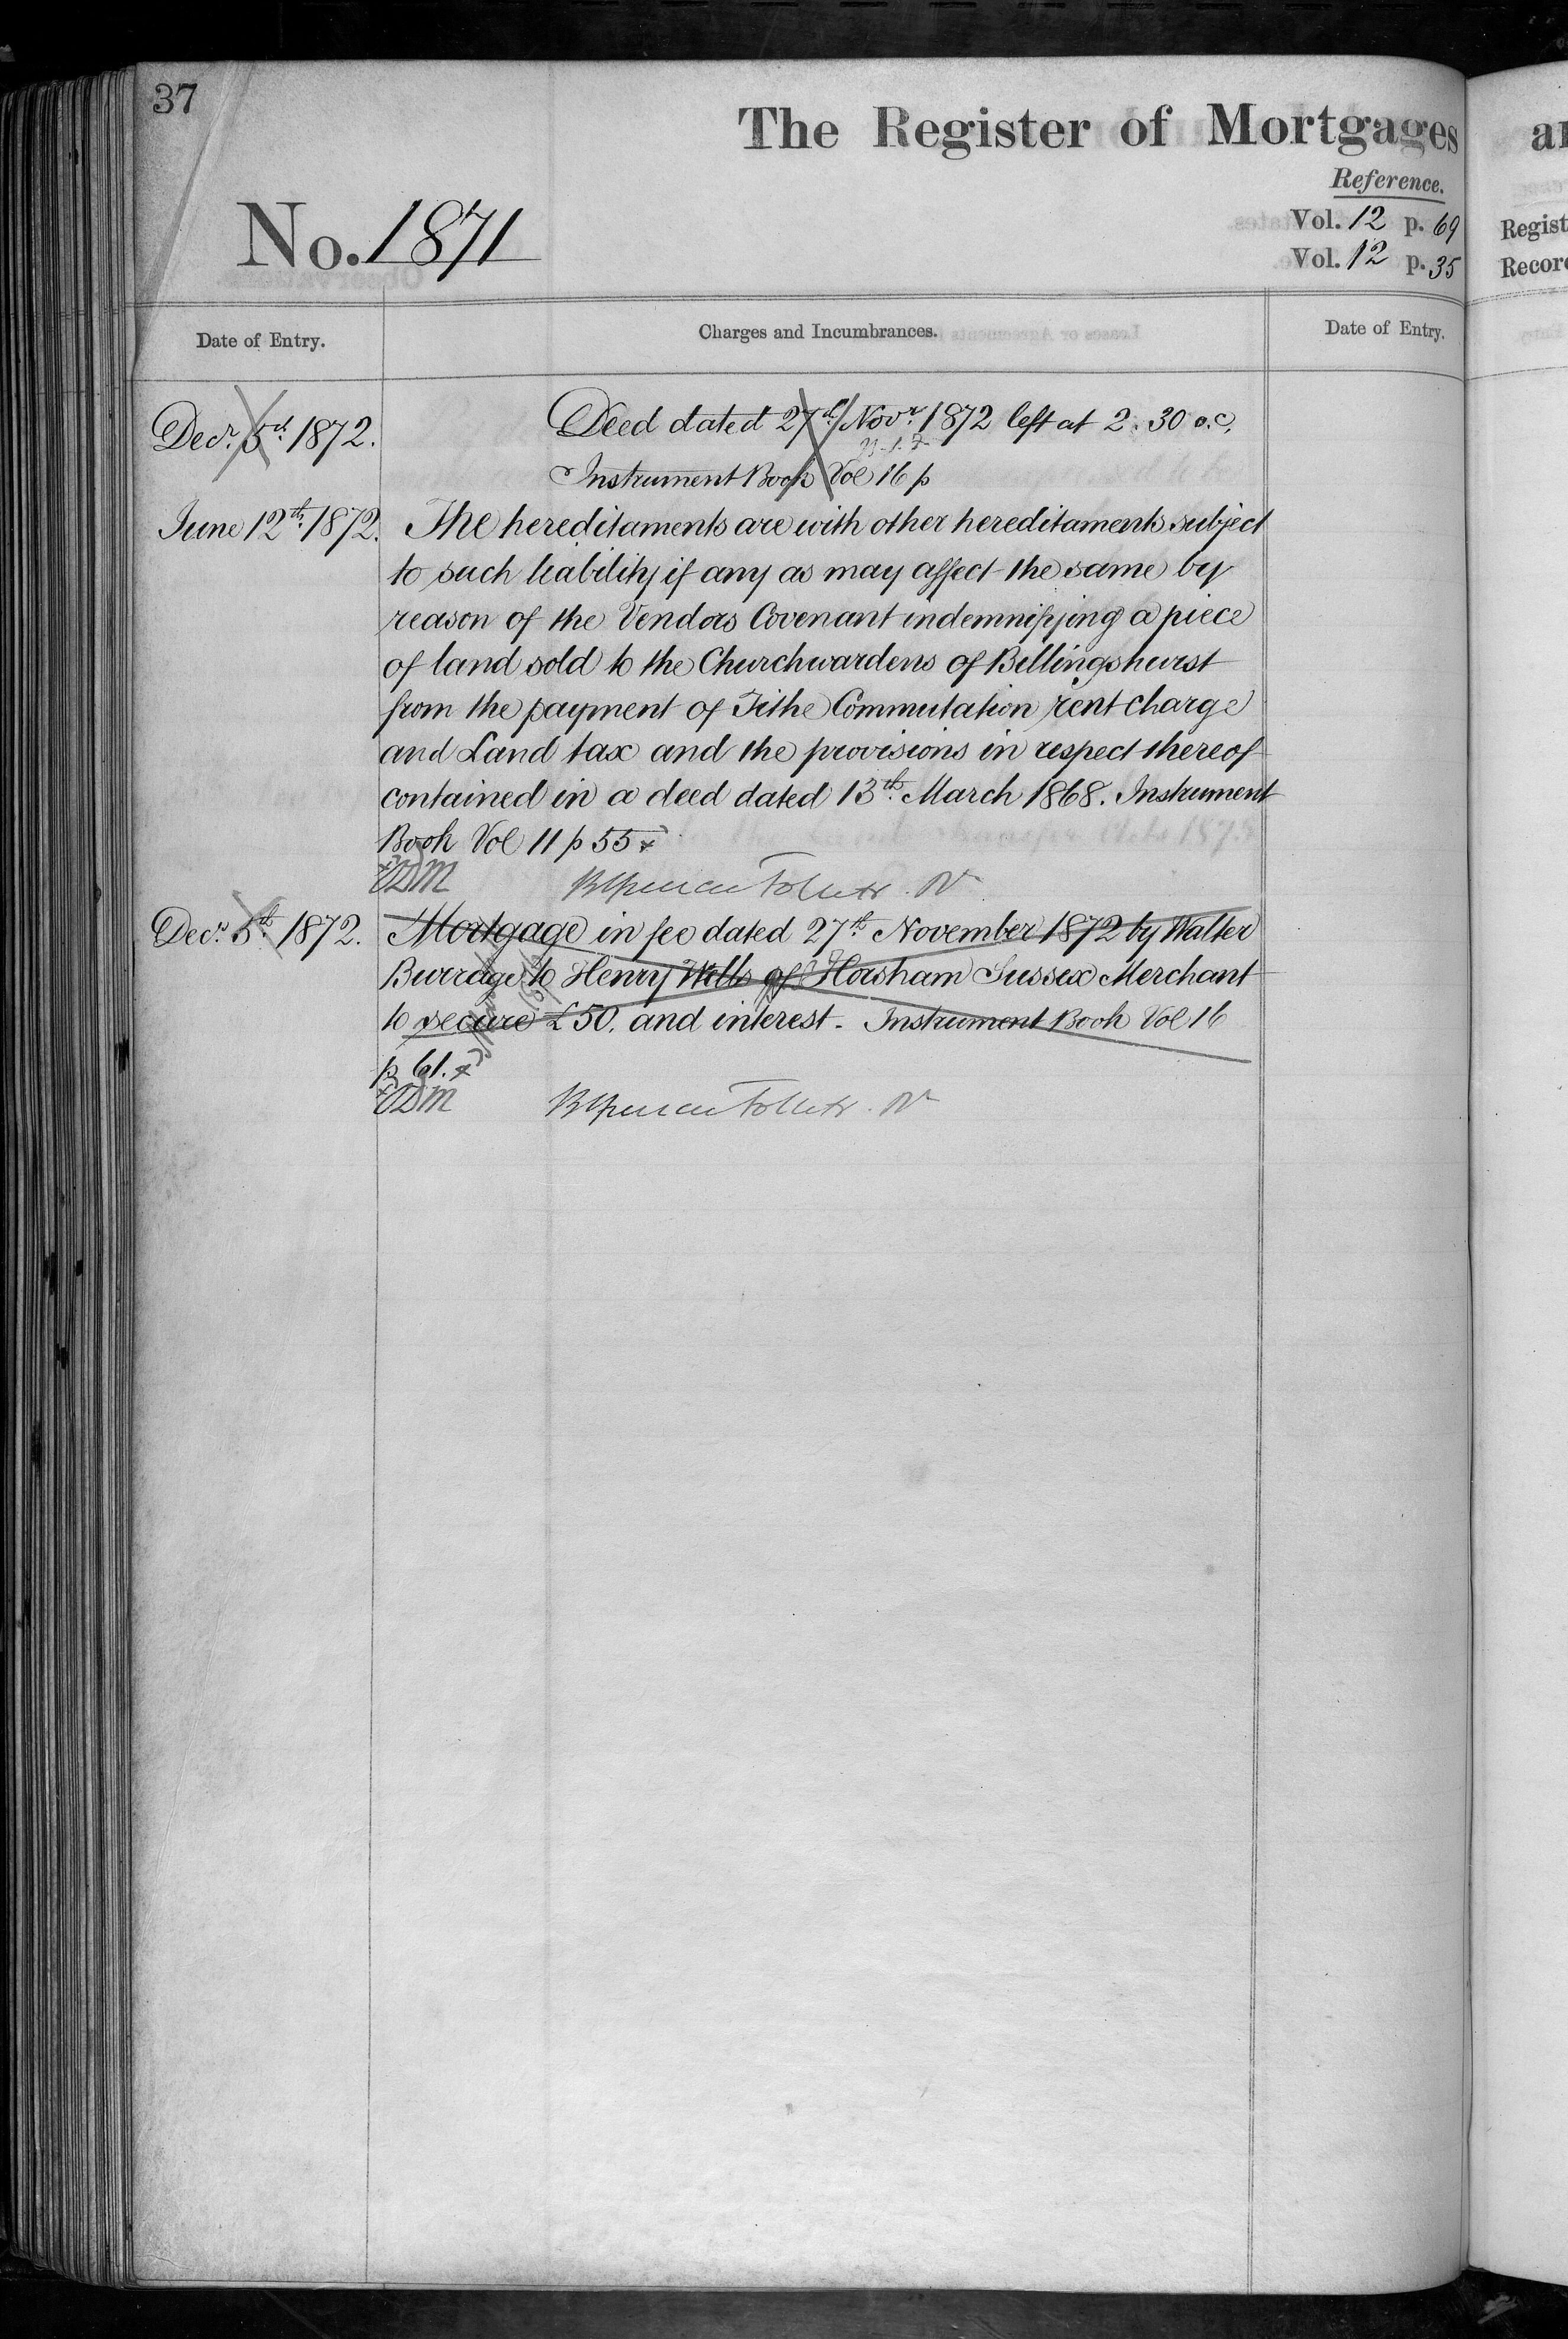 37
The Register of Mortgages
Reference.
No. 1871
Vol. 12 p. 69
Vol. 12 p. 35
Regist
Recor
Date of Entry.
Charges and Incumbrances.
Date of Entry.
Decr. 5th. 1872.
Deed dated 27th. Novr. 1872 left at 2.30 o.c.
Instrument Book Vol 16 p
June 12th. 1872.
The hereditaments are with other hereditaments subject
to such liability if any as may affect the same by
reason of the Vendors Covenant indemnifying a piece
of land sold to the Churchwardens of Billingshurst
from the payment of Tithe Commutation rent charge
and Land tax and the provisions in respect thereof
contained in a deed dated 13th. March 1868. Instrument
Book Vol 11 p 55 x
Decr. 5th. 1872.
Mortgage in fee dated 27th. November 1872 by Walter
Burrage to Henry Wells of Horsham Sussex Merchant
to secure £50. and interest. Instrument Book Vol 16
p 61. x